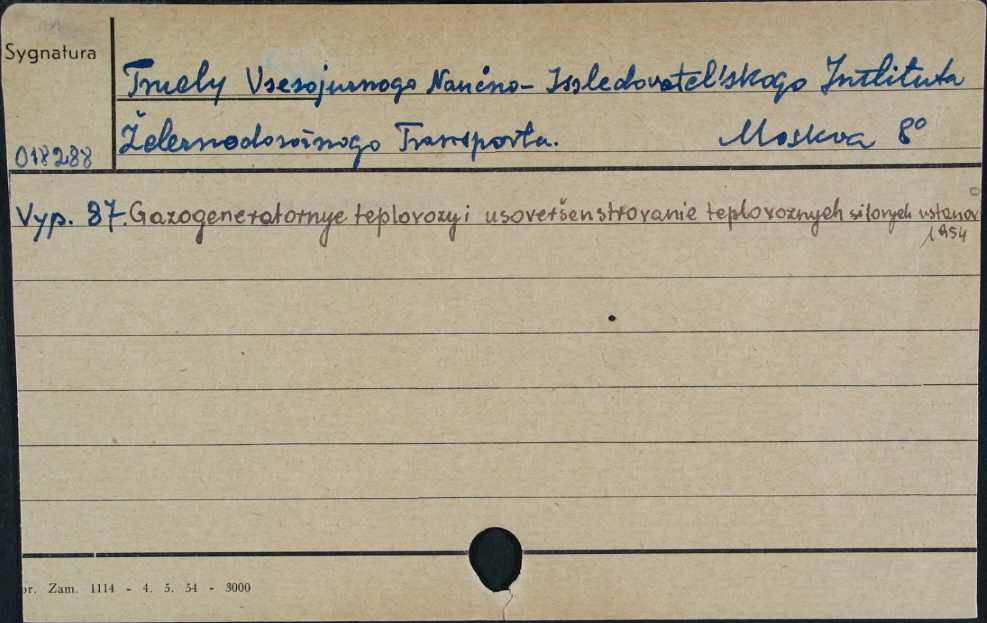 Sygnatura
Trudy Vsesojuznogo Naučno-Issledovatel'skogo Instituta
Železnodorožnogo Transporta. Moskva 8°
018288
Vyp. 87. Gazogeneratornye teplovozy i usoveršenstvovanie teplovoznych silovych ustanov
1954
Zam. 1114 - 4. 5. 54 - 3000